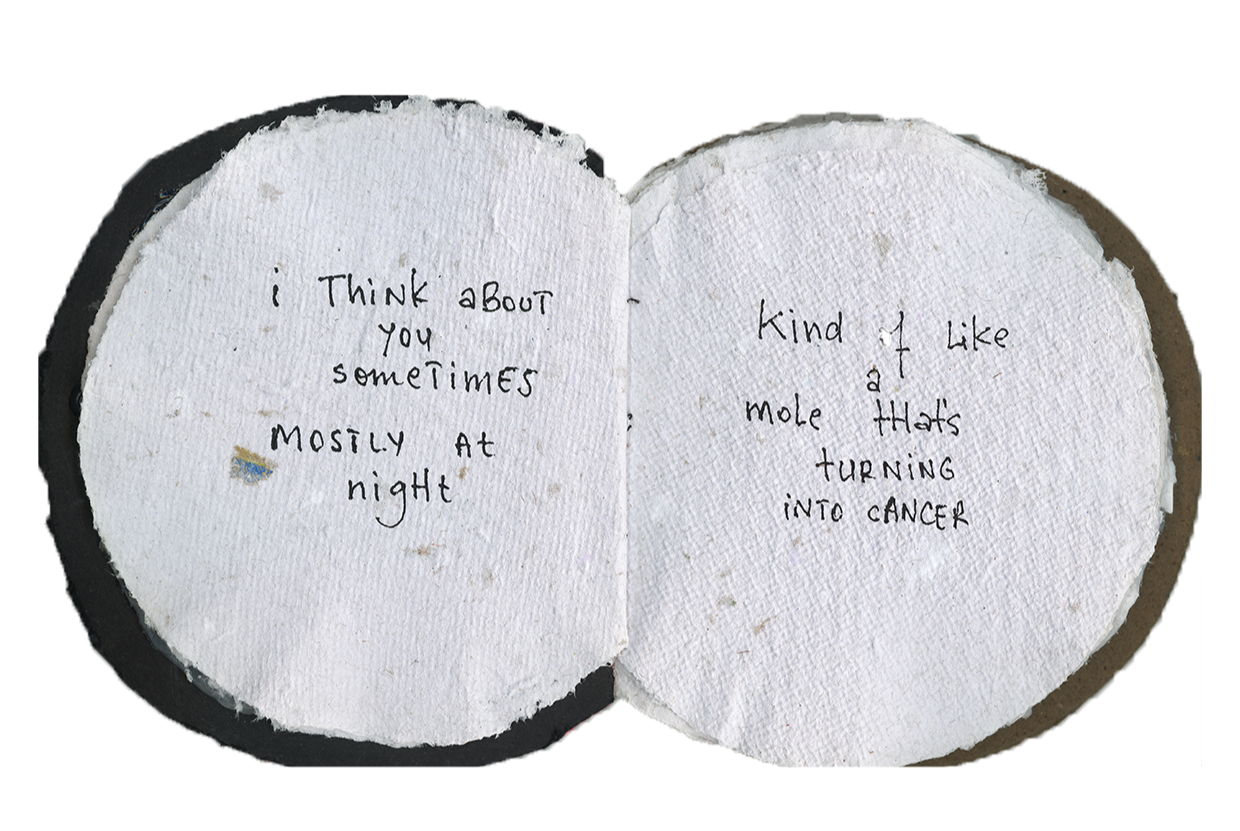 i ThiNk aBouT
You
someTimES
MOSTLY At
nigHt
Kind of Like
a
mole tHat's
tURNiNG
iNTO cANCER